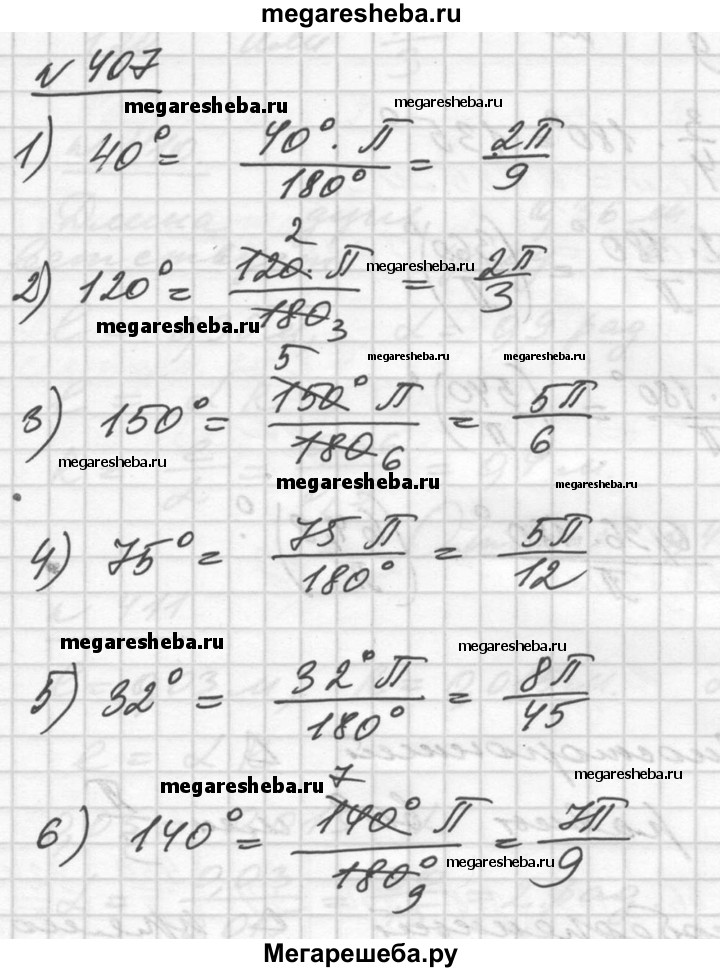 megaresheba.ru
№ 407
megaresheba.ru megaresheba.ru
1) 40° = 40° · π / 180° = 2π / 9
2) 120° = 120 · π / 180 = 2π / 3
2
3
megaresheba.ru
megaresheba.ru
megaresheba.ru megaresheba.ru
3) 150° = 150° π / 180 = 5π / 6
5
6
megaresheba.ru megaresheba.ru megaresheba.ru
4) 75° = 75 π / 180° = 5π / 12
megaresheba.ru megaresheba.ru
5) 32° = 32° π / 180° = 8π / 45
megaresheba.ru megaresheba.ru
6) 140° = 140° π / 180° = 7π / 9
7
9
megaresheba.ru
Мегарешеба.ру